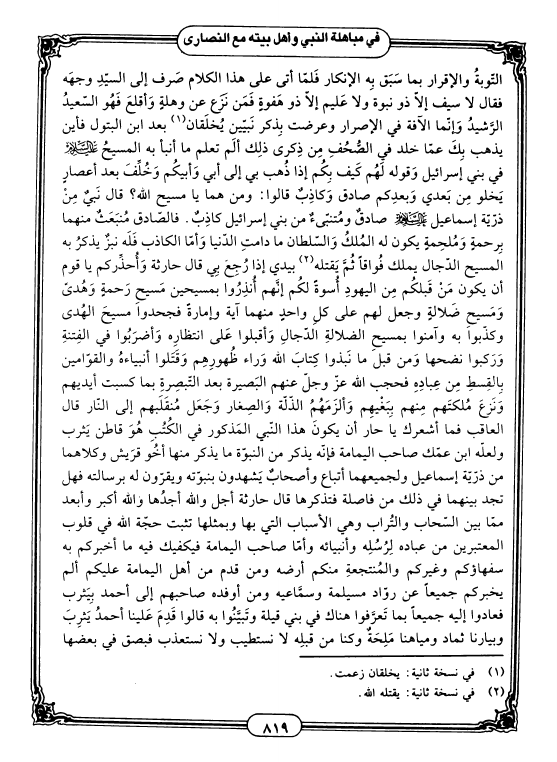 في مباهلة النبي وأهل بيته مع النصارى
التّوبةُ والإقرار بما سَبَق بِه الإنكار فَلمّا أتى على هذا الكلام صَرف إلى السيِّد وجهَه
فقال لا سيف إلاّ ذو نبوة ولا عليم إلاّ ذو هَفوةٍ فَمَن نَزَع عن وهلةٍ وأقلعَ فَهُو السّعيدُ
الرَّشيدُ وَإنّما الآفة في الإصرار وعرضت بِذكر نَبيّين يُخلقان(١) بعد ابن البتول فأين
يذهب بِكَ عمّا خلد في الصُّحُفِ مِن ذِكرى ذلِك ألَم تعلم ما أنبأ به المسيحُ عليه السلام
في بني إسرائيل وَقوله لَهُم كَيف بِكُم إذا ذُهب بي إلى أبي وَأبيكُم وَخُلِّفَ بعد أعصارٍ
يَخلو مِن بَعدي وَبعدِكم صادق وَكاذِبٌ قالوا: ومن هما يا مسيح الله؟ قال نَبيٌ مِنْ
ذرّية إسماعيل عليه السلام صادقٌ ومُتنبّىءٌ من بني إسرائيل كاذِبٌ . فالصّادق مُنبَعَثٌ منهما
بِرحمةٍ وَمُلحِمةٍ يكون له المُلكُ وَالسّلطان ما دامتِ الدّنيا وَأمّا الكاذب فَلَه نبزٌ يذكرُ به
المسيح الدّجال يملك فُواقاً ثُمَّ يَقتله(٢) بيدي إذا رُجِعَ بي قال حارثة وَأُحذِّركم يا قوم
أن يكون مَنْ قَبلكُم مِن اليهودِ أُسوةً لكُم إنَّهم أُنذِرُوا بمسيحين مَسيح رَحمةٍ وَهُدىً
وَمَسيح ضَلالةٍ وجعل لهم على كلِ واحدٍ منهما آية وإمارةً فجحدوا مسيحَ الهُدى
وكذّبوا به وآمنوا بمسيح الضلالةِ الدّجالِ وَأقبلوا عَلى انتظاره وَأضرَبُوا في الفِتنةِ
وَرَكبوا نضحها وَمن قبل ما نَبذوا كِتابَ الله وَراء ظُهورِهِم وَقَتَلوا أنبياءهُ والقوّامين
بِالقِسطِ مِن عِبادِه فحجب الله عزّ وجلّ عنهم البَصيرة بعد التَبصِرةِ بما كسبت أيديهم
وَنَزعَ مُلكتَهم منهم بِبَغْيِهِم وَألزَمَهُمُ الذّلّة وَالصِغار وَجَعَل مُنقلَبِهم إلى النّار قال
العاقب فما أشعرك يا حار أن يكونَ هذا النّبي المَذكور في الكُتُب هُوَ قاطن يَثرب
ولعلّه ابن عمّك صاحب اليمامة فإنّه يذكر من النبوّة ما يذكر منها أخُو قريش وكلاهما
من ذرّية إسماعيل ولجميعهما أتباع وأصحابٌ يَشهدون بنبوّته ويقرّون له برسالته فهل
تجد بينهما في ذلك من فاصلة فتذكرها قال حارثة أجل والله أجدُها والله أكبر وأبعد
ممّا بين السّحاب والتُراب وهي الأسباب التي بها وبمثلها تثبت حجّة الله في قلوب
المعتبرين من عباده لِرُسُلِه وأنبيائه وأمّا صاحب اليمامة فيكفيك فيه ما أخبركم به
سفهاؤكم وغيركم والمُنتجعة منكم أرضه ومن قدم من أهل اليمامة عليكم ألم
يخبركم جميعاً عن روّاد مسيلمة وسمّاعيه ومن أوفده صاحبهم إلى أحمد بِيَثرب
فعادوا إليه جميعاً بما تعرَّفوا هناك في بني قيلة وتَبيَّنُوا به قالوا قَدِمَ عَلينا أحمدُ يَثرِبَ
وبيارنا ثماد ومياهنا مَلِحَةٌ وكنا من قبلِه لا نستطيب ولا نستعذب فبصق في بعضها
(١) في نسخة ثانية: يخلقان زعمت.
(٢) في نسخة ثانية: يقتله الله.
٨١٩